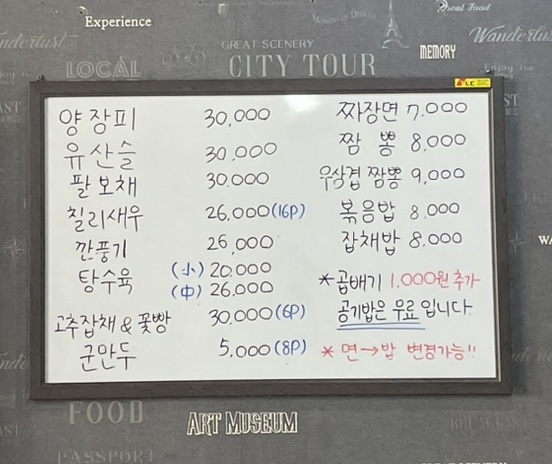 Experience
Local Food
Wanderlust
MEMORY
GREAT SCENERY
LOCAL
CITY TOUR
양장피 30,000
유산슬 30,000
팔보채 30,000
칠리새우 26,000(16P)
깐풍기 26,000
탕수육 (小) 20,000
(中) 26,000
고추잡채 & 꽃빵 30,000(6P)
군만두 5,000(8P)
짜장면 7,000
짬뽕 8,000
우삼겹 짬뽕 9,000
볶음밥 8,000
잡채밥 8,000
*곱배기 1,000원 추가
공기밥은 무료입니다
* 면→밥 변경가능!!
FOOD
ART MUSEUM
PASSPORT